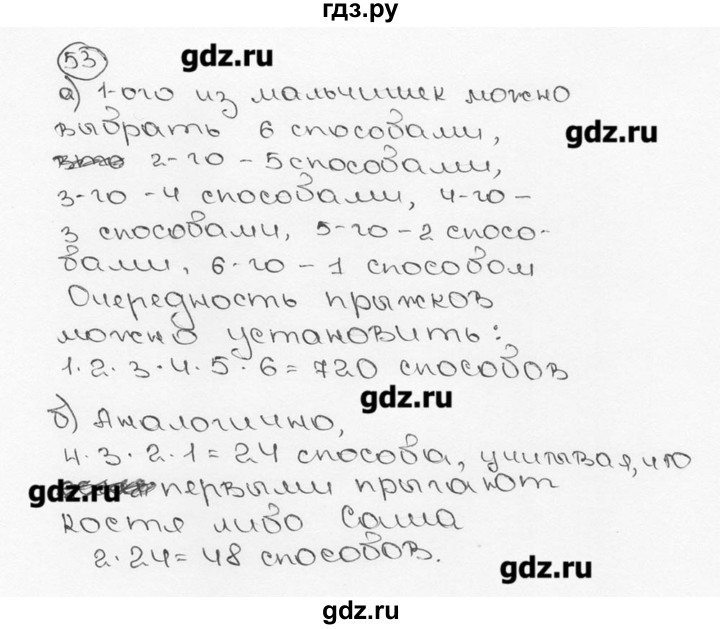 гдз.ру
53 gdz.ru
а) 1-ого из мальчишек можно
выбрать 6 способами, gdz.ru
2-го - 5 способами,
3-го - 4 способами, 4-го -
3 способами, 5-го - 2 спосо-
бами, 6-го - 1 способом
Очередность прыжков
можно установить:
1·2·3·4·5·6=720 способов
gdz.ru
б) Аналогично,
4·3·2·1=24 способа, учитывая, что
gdz.ru первыми прыгают
Костя либо Саша
2·24=48 способов.
gdz.ru
gdz.ru